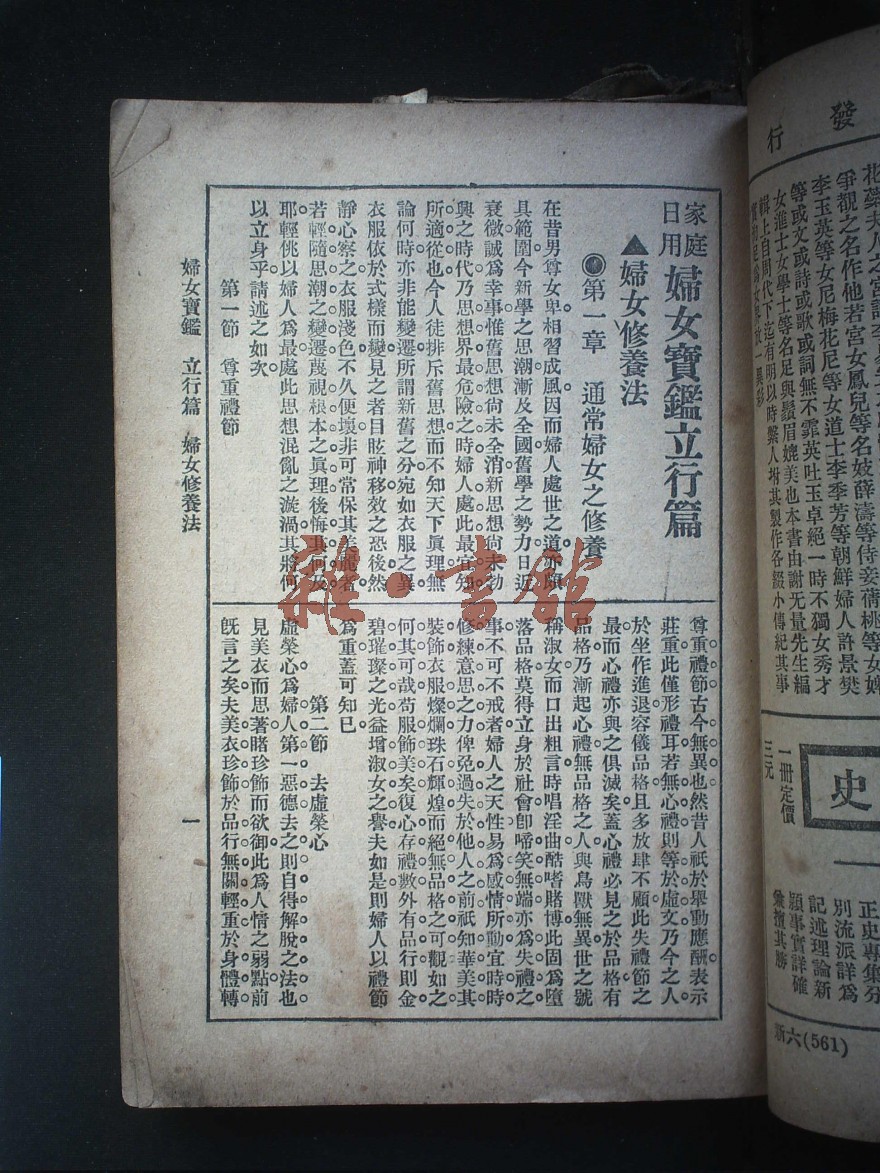 家庭日用 婦女寶鑑立行篇
▲婦女修養法
第一章 通常婦女之修養
在昔男尊女卑相習成風因而婦人處世之道亦頗
具範圍今新學之思潮漸及全國舊學之勢力日近
衰微誠爲幸事惟舊思想尙未全消新思想尙未勃
興之時代乃思想界最危險之時婦人處此最宜知
所適從也今人徒排斥舊思想而不知天下眞理無
論何時亦非能變遷所謂新舊之分宛如衣服之異
衣服依於式樣而變見之者目眩神移效之恐後然
靜心察之衣服淺色不久便壞非可常保其美麗者
若輕隨思潮之變遷蔑視根本之眞理後悔其何及
耶輕佻以婦人爲最處此思想混亂之漩渦其將何
以立身乎請述之如次
第一節 尊重禮節
尊重禮節古今無異也然昔人祇於舉動應酬表示
莊重此僅形禮耳若無心禮則等於虛文乃今之人
於坐作進退容儀品格且多放肆不顧此失禮節之
最而心禮亦與之俱滅矣蓋心禮必見之於品格有
品格乃漸起心禮無品格之人與鳥獸無異世之號
稱淑女而口出粗言時唱淫曲酷嗜賭博此固爲墮
落品格莫得立身於社會卽啼笑無端亦爲失禮之
事不可不戒者婦人之天性易爲感情所動宜時時
修練意思之力俾免過失於他人之前祇知華美其
裝飾衣服燦爛珠石輝煌而絕無品格之可觀如之
何其可哉苟服飾美矣復心存禮數外有品行則金
碧璀璨之光益增淑女之譽夫如是則婦人以禮節
爲重蓋可知已
第二節 去虛榮心
虛榮心爲婦人第一惡德去之則自得解脫之法也
見美衣而思著睹珍飾而欲御此爲人情之弱點前
旣言之矣夫美衣珍飾於品行無關輕重於身體轉
婦女寶鑑 立行篇 婦女修養法
一
雜·書館
發行
花蘂夫人之宮詞
爭覩之名作他若宮女鳳兒等名妓薛濤等侍妾蒨桃等女婢
李玉英等女尼梅花尼等女道士李季芳等朝鮮婦人許景樊
等或文或詩或歌或詞無不霏英吐玉卓絕一時不獨女秀才
女進士女學士等名足與鬚眉媲美也本書由謝无量先生編
輯上自周代下迄有明以時繫人坿其製作各綴小傳紀其事
史
一冊定價
三元
正史專集分
別流派詳爲
記述理論新
穎事實詳確
擅其勝
新六(561)